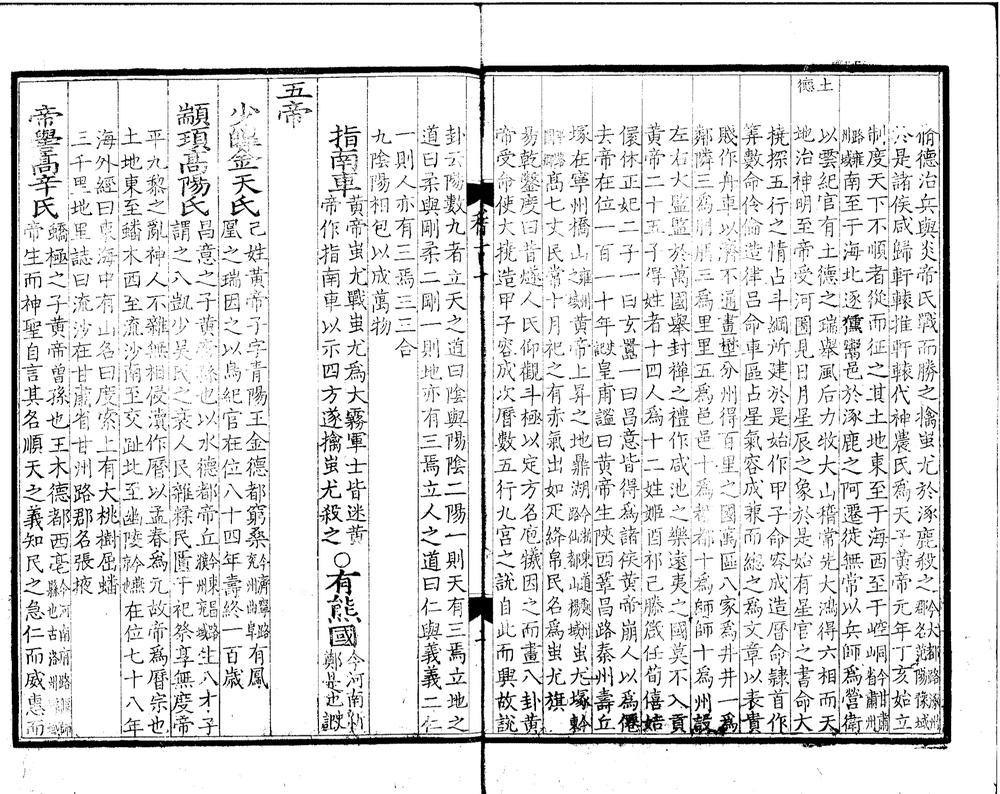 土德
脩德治兵與炎帝氏戰而勝之擒蚩尤於涿鹿殺之
於是諸侯咸歸軒轅推軒轅代神農氏爲天子黃帝元年丁亥始立
制度天下不順者從而征之其土地東至于海西至于崆峒
南至于海北逐獯鬻邑於涿鹿之阿遷徙無常以兵師爲營衛
以雲紀官有土德之瑞舉風后力牧大山稽常先大鴻得六相而天
地治神明至帝受河圖見日月星辰之象於是始有星官之書命大
撓探五行之情占斗綱所建於是始作甲子命容成造曆命隸首作
算數命伶倫造律呂命車區占星氣容成兼而總之爲文章以表貴
賤作舟車以濟不通畫壄分州得百里之國萬區八家爲井井一爲
鄰鄰三爲朋朋三爲里里五爲邑邑十爲都都十爲師師十爲州設
左右大監監於萬國舉封禪之禮作咸池之樂遠夷之國莫不入貢
黃帝二十五子得姓者十四人爲十二姓姬酉祁己滕葴任荀僖姞
儇依正妃二子一曰玄囂一曰昌意皆得爲諸侯黃帝崩人以爲僊
去帝在位一百一十年皇甫謐曰黃帝生陝西鞏昌路秦州壽丘
塚在寧州橋山之黃帝上昇之地鼎湖蚩尤塚
高七丈民常十月祀之有赤氣出如疋絳帛民名爲蚩尤旗
易乾鑿度曰昔燧人氏仰觀斗極以定方名庖犧因之而畫八卦黃
帝受命使大撓造甲子容成次曆數五行九宮之說自此而興故說
卦云陽數九者立天之道曰陰與陽陰二陽一則天有三焉立地之
道曰柔與剛柔二剛一則地亦有三焉立人之道曰仁與義義二仁
一則人亦有三焉三三合
九陰陽相包以成萬物
指南車 黃帝蚩尤戰蚩尤爲大霧軍士皆迷黃
帝作指南車以示四方遂擒蚩尤殺之 ○有熊國 今河南新鄭是也
五帝
少皞金天氏 己姓黃帝子字青陽王金德都窮桑有鳳
凰之瑞因之以鳥紀官在位八十四年壽終一百歲
顓頊高陽氏 昌意之子黃帝孫也以水德都帝丘生八才子
謂之八凱少昊氏之衰人民雜糅民匱于祀祭享無度帝
平九黎之亂神人不雜無相侵瀆作曆以孟春爲元故帝爲曆宗也
土地東至蟠木西至流沙南至交趾北至幽陵在位七十八年
海外經曰東海中有山名曰度索上有大桃樹屈蟠
三千里地里誌曰流沙在甘肅省甘州路郡名張掖
帝嚳高辛氏 蟜極之子黃帝曾孫也王木德都西亳
帝生而神聖自言其名順天之義知民之急仁而威惠而